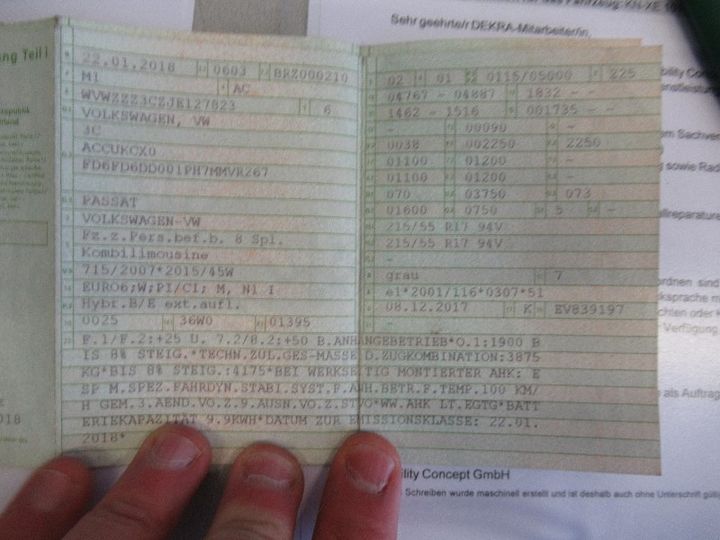 Sehr geehrte/r DEKRA-Mitarbeiter/in,
ng Teil I
22.01.2018 0603 BRZ000210
M1 AC
WVWZZZ3CZJE127823 6
VOLKSWAGEN, VW
3C
ACCUKCX0
FD6FD6DD001PH7MMVR267
PASSAT
VOLKSWAGEN-VW
Fz.z.Pers.bef.b. 8 Spl.
Kombilimousine
715/2007*2015/45W
EURO6;W;PI/CI; M, N1 I
Hybr.B/E ext.aufl.
0025 36W0 01395
02 01 0115/05000 225
04767 - 04887 1832 - -
1462 - 1516 001735 - -
- 00090 -
0038 002250 2250
01100 01200 -
01100 01200 -
070 03750 073
01600 0750 5 -
215/55 R17 94V
215/55 R17 94V
-
grau 7
e1*2001/116*0307*51
08.12.2017 K EV839197
-
F.1/F.2:+25 U. 7.2/8.2:+50 B.ANHANGEBETRIEB*O.1:1900 B
IS 8% STEIG.*TECHN.ZUL.GES-MASSE D.ZUGKOMBINATION:3875
KG*BIS 8% STEIG.:4175*BEI WERKSEITIG MONTIERTER AHK: E
SP M.SPEZ.FAHRDYN.STABI.SYST.F.ANH.BETR.F.TEMP.100 KM/
H GEM.3.AEND.VO.Z.9.AUSN.VO.Z.STVO*WW.AHK LT.EGTG*BATT
ERIEKAPAZITÄT 9.9KWH*DATUM ZUR EMISSIONSKLASSE: 22.01.
2018*
2018
bility Conc
enstleistun
em Sachver
g sowie Rad
allreparature
ordnen sind
ksprache m
chten oder K
Verfügung
als Auftrag
ility Concept GmbH
Schreiben wurde maschinell erstellt und ist deshalb auch ohne Unterschrift gülti